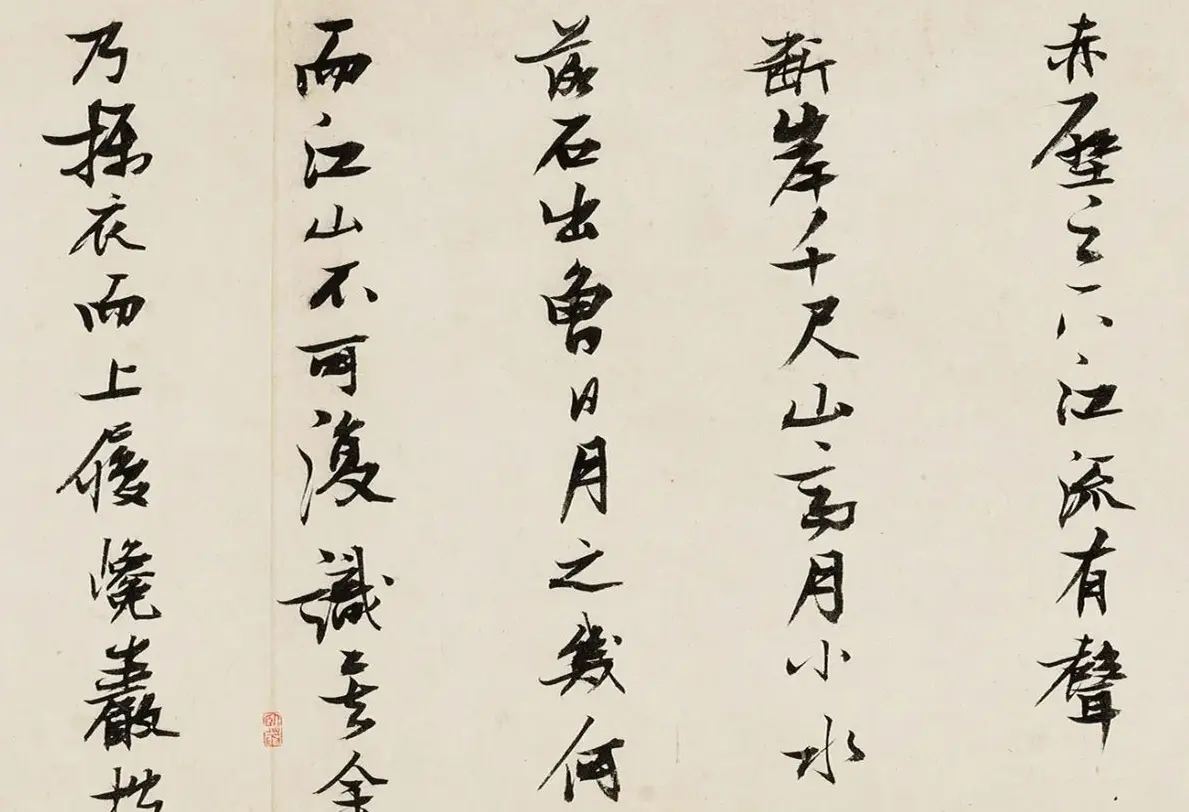 赤壁之下江流有聲
斷岸千尺山高月小水
落石出曾日月之幾何
而江山不可復識矣余
乃攝衣而上履巉巖